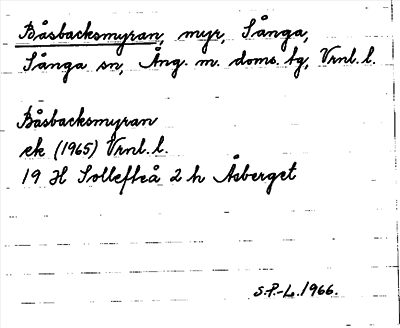 Båsbacksmyran, myr, Sånga,
Sånga sn, Ång. m. doms. tg, Vrnl. l.
Båsbacksmyran
ek (1965) Vrnl. l.
19 H Sollefteå 2 h Åsberget
S.P.-L. 1966.